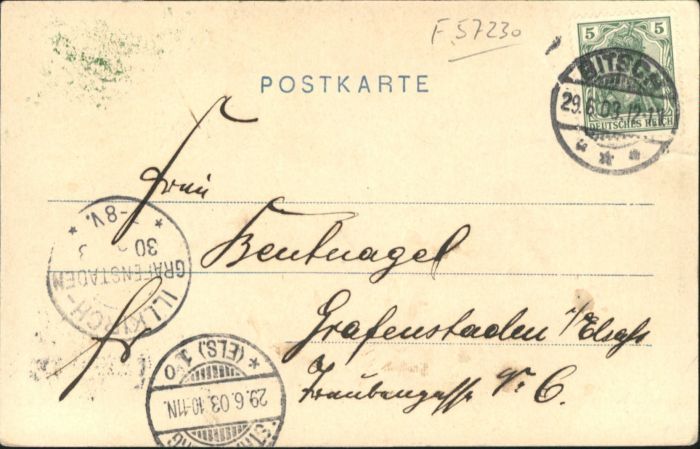 F 57230
5 5
DEUTSCHES REICH
BITSCH
29.6.03.12-1N
POSTKARTE
Frau
Bentnagel
Grafenstaden i/Elsass
Traubengasse Nr. 6.
ILLKIRCH-
GRAFENSTADEN
30
7-8V.
(ELS.)
29.6.03.10-11N.